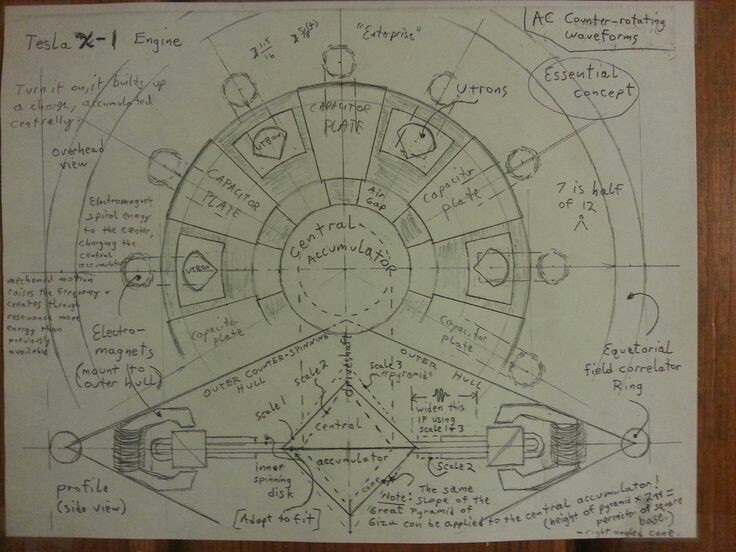 Tesla X-1 Engine
"Enterprise"
AC Counter-rotating
waveforms
Essential
Concept
Turn it on, it builds up
a charge, accumulated
centrally.
overhead
view
Utrons
UTRON
CAPACITOR
PLATE
CAPACITOR
PLATE
Capacitor
plate
Air
Gap
Central
Accumulator
7 is half
of 12
Electromagnets
spiral energy
to the center,
charging the
central
accumulator
mechanical motion
raises the frequency +
creates through
resonance more
energy than
previously
available
UTRON
Capacitor
plate
Capacitor
plate
Electro-
magnets
(mount to
outer hull)
Equatorial
field correlator
Ring
OUTER COUNTER-SPINNING
HULL
Driveshaft
OUTER HULL
scale 1
scale 2
scale 3
"pyramid"
widen this
IF using
scale 1+3
Central
accumulator
cone
scale 2
inner
spinning
disk
[Adapt to fit]
profile
(side view)
Note: The same
slope of the
Great Pyramid of
Giza can be applied to the central accumulator!
(height of pyramid x 2π =
perimeter of square
base.)
- right angled cone.